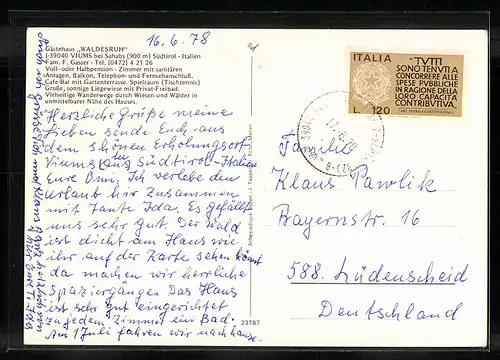 16.6.78
Gästehaus „WALDESRUH"
I-39040 VIUMS bei Schabs (900 m) Südtirol - Italien
Fam. F. Gasser - Tel. (0472) 4 21 26
Voll- oder Halbpension - Zimmer mit sanitären
Anlagen, Balkon, Telephon- und Fernsehanschluß.
Cafe-Bar mit Gartenterrasse. Spielraum (Tischtennis)
Große, sonnige Liegewiese mit Privat-Freibad.
Vielseitige Wanderwege durch Wiesen und Wälder in
unmittelbarer Nähe des Hauses.
Herzliche Grüße meine
Lieben sende Euch aus
dem schönen Erholungsort
Viums aus Südtirol-Italien
Eure Omi. Ich verlebe den
Urlaub hir zusammen
mit Tante Ida. Es gefällt
uns sehr Gut. Der Wald
ist dicht am Haus wie
ihr auf der Karte sehen könt
da machen wir herrliche
Spaziergänge. Das Haus
ist sehr gut eingerichtet
zu jedem Zimmer ein Bad.
Am 1 Juli fahren wir nach hause.
23787
ITALIA
TUTTI
SONO TENUTI A
CONCORRERE ALLE
SPESE PUBBLICHE
IN RAGIONE DELLA
LORO CAPACITÀ
CONTRIBUTIVA
L. 120
Familie
Klaus Pawlik
Bayernstr. 16
588. Lüdenscheid
Deutschland